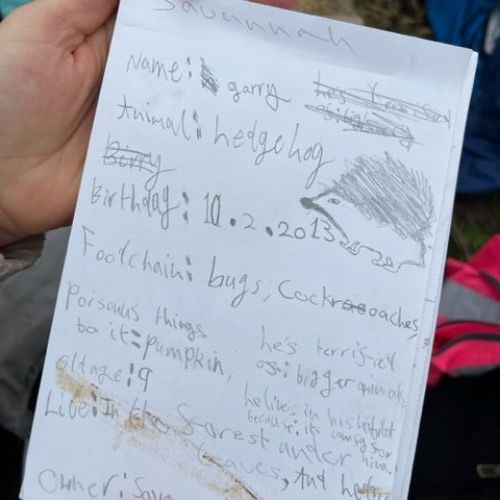 Savannah
Name: garry
Animal: hedgehog
Birthday: 11.2.2013
Foodchain: bugs, Cockroaches,
Poisonus things
to it = pumpkin,
he's terrisied
os: bigger animals
oltage: 9
he lives in his
because: its comsy for
him.
Live: In the forest under
leaves, And
Owner: Sava